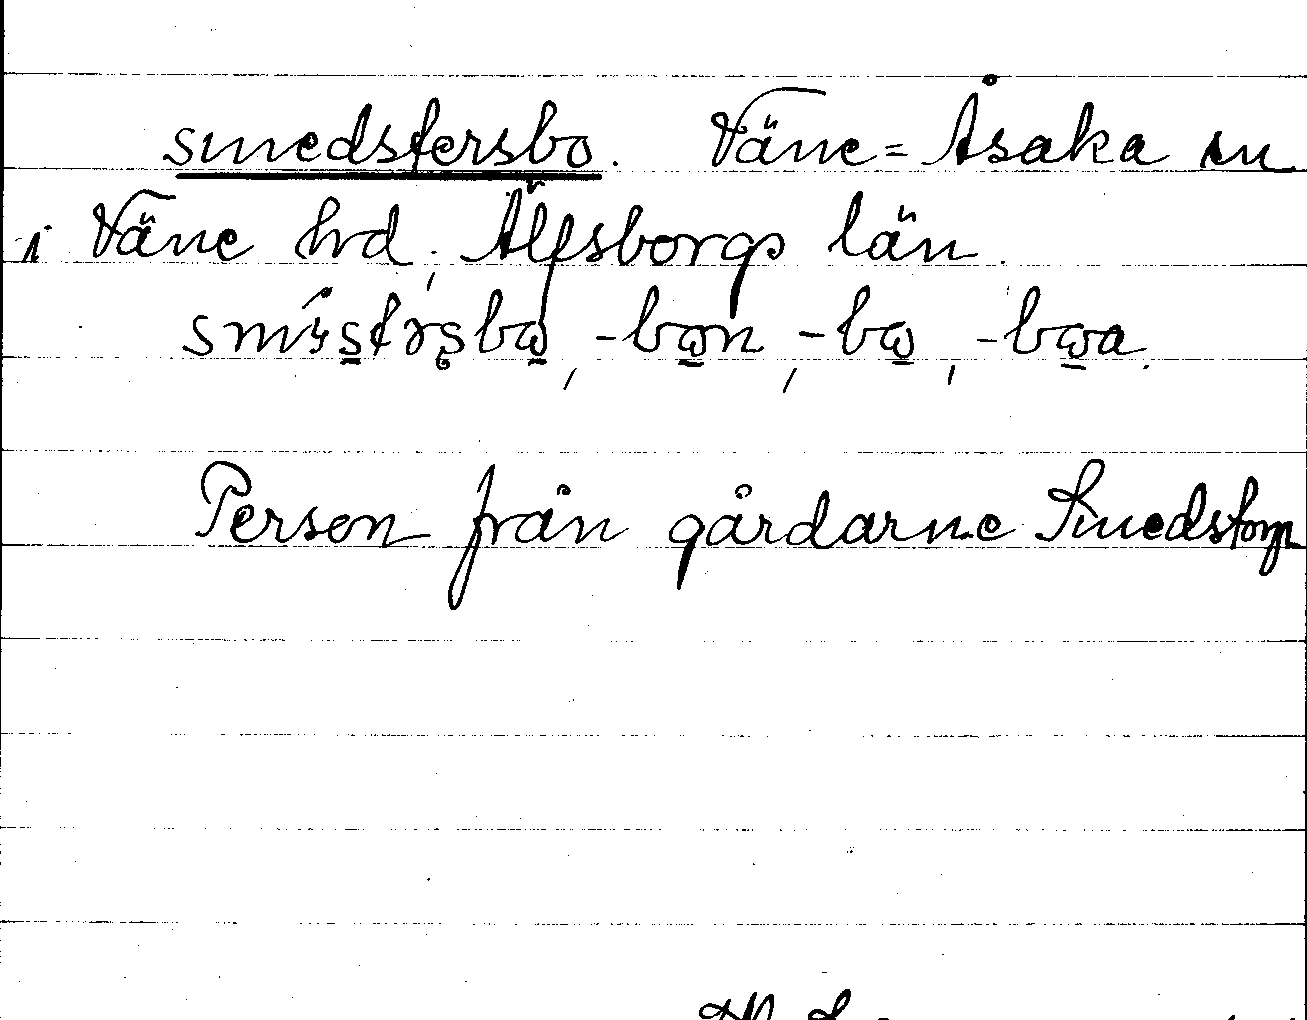 smedstersbo. Väne=Åsaka sn
i Väne hd, Älfsborgs län.
-bѡn, -bѡ, -bѡa.
Person från gårdarne Smedstorp